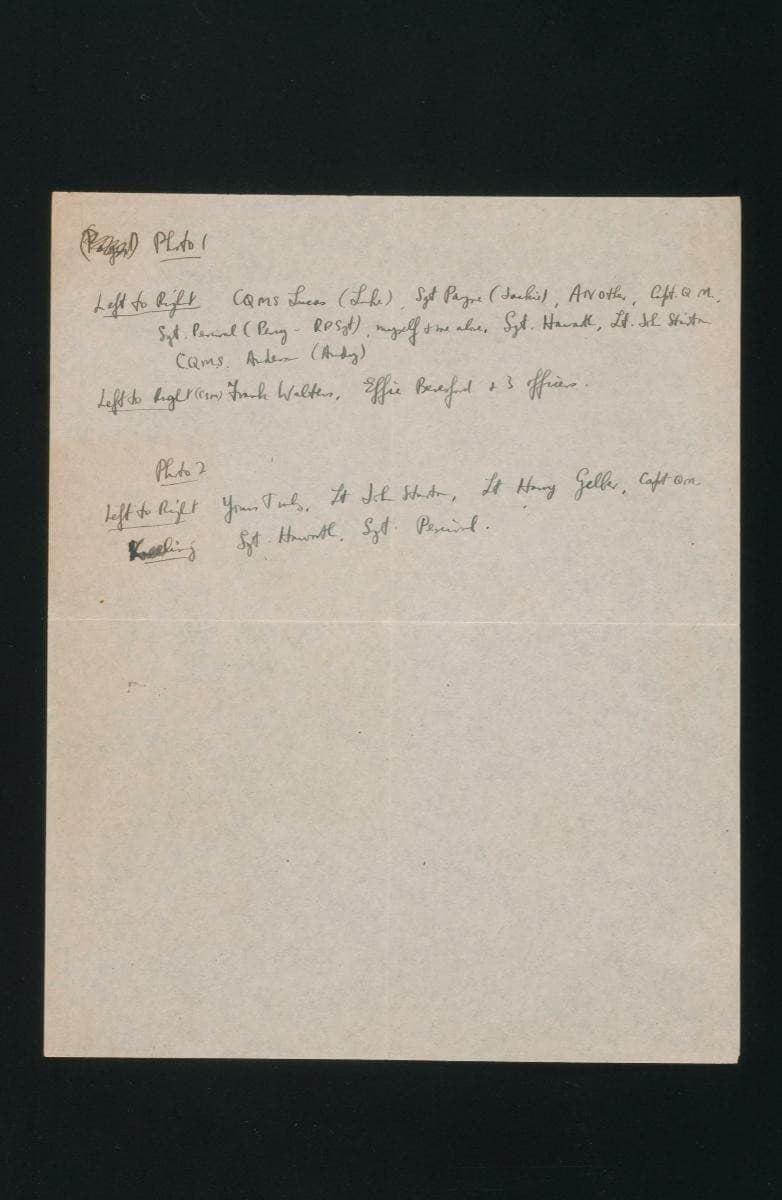 Photo 1
Left to Right CQMS Lucas (Luke), Sgt Payne (Jackie), AN Other, Capt. Q.M.
Sgt. Percival (Percy - RPSgt), myself & me alive, Sgt. Haworth, Lt. John
CQMS. Anderson (Andy)
Left to Right (CSM) Frank Walters, Effie Beresford & 3 officers.
Photo 2
Left to Right Yours Truly, Lt John Lt Harry Gelber, Capt QM.
Kneeling Sgt. Haworth, Sgt. Percival.